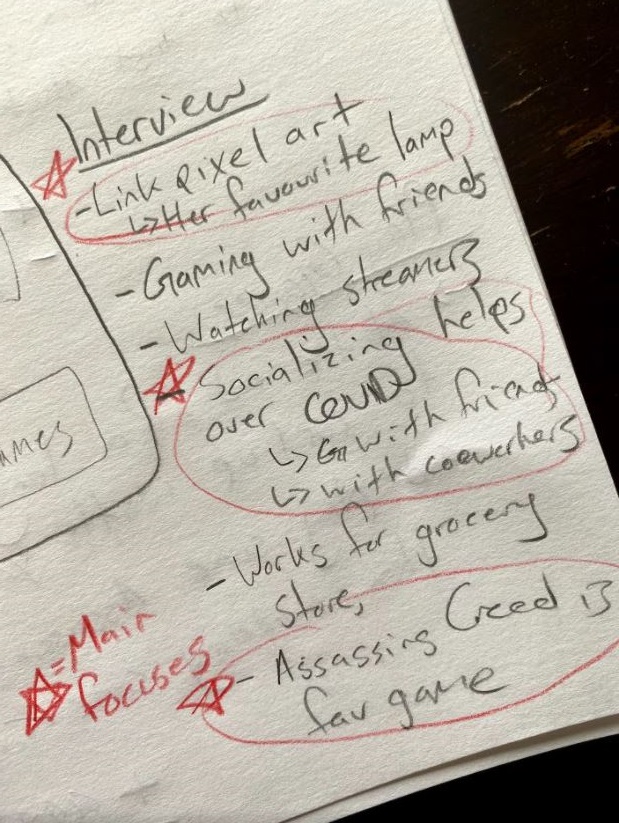 Interview
- Link pixel art
↳ Her favourite lamp
- Gaming with friends
- Watching streamers
- Socializing helps
over COVID
↳ with friends
↳ with coewerkers
- Works for grocery
store,
- Assassins Creed is
fav game
= Main
focuses